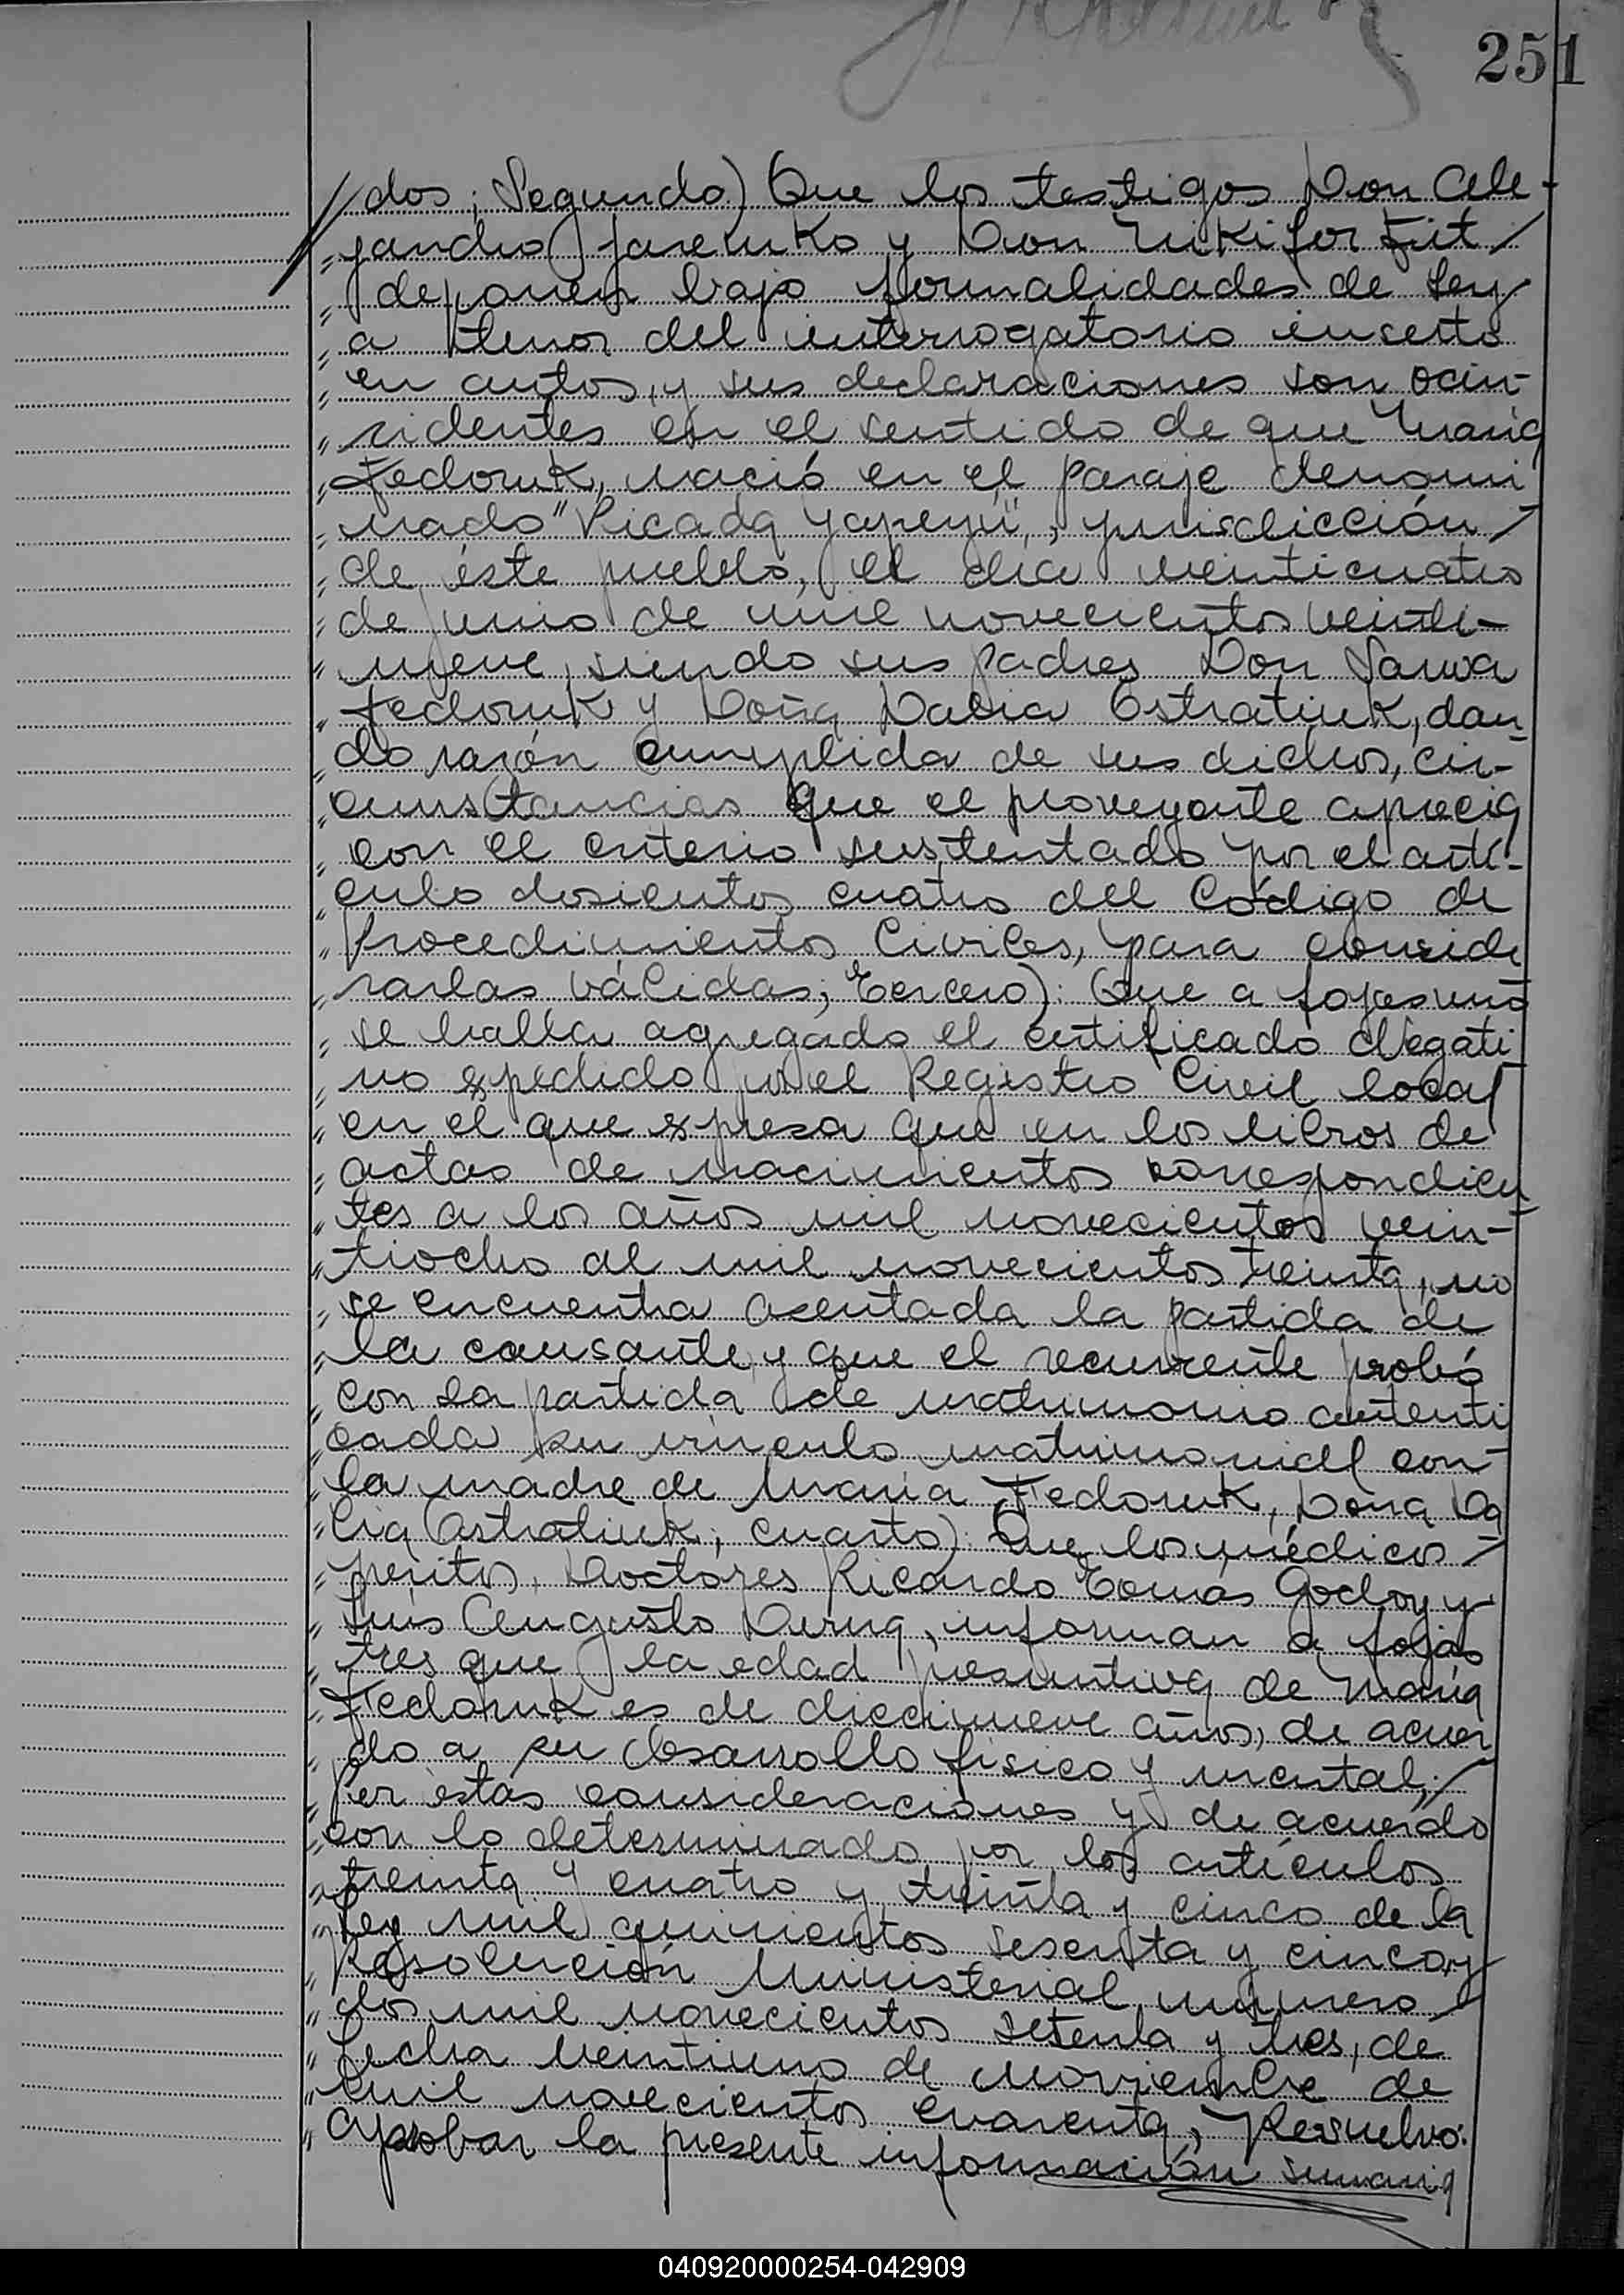 251
dos; Segundo) Que los testigos Don Ale-
jandro Jaremko y Don Nikifor Fut /
deponen bajo formalidades de Ley
a tenor del interrogatorio inserto
en autos, y sus declaraciones son coin-
cidentes en el sentido de que María
Fedoruk, nació en el paraje denomi
nado "Picada Yapeyú", jurisdicción /
de éste pueblo, el día veinticuatro
de junio de mil novecientos veinti-
nueve, siendo sus padres Don Sawa
Fedoruk y Doña Dalia Ostratiuk, dan
do razón cumplida de sus dichos, cir-
cunstancias que el proveyente aprecia
con el criterio sustentado por el artí-
culo dosientos cuatro del Código de
Procedimientos Civiles, para conside
rarlas válidas; Tercero): Que a fojas uno
se halla agregado el certificado Negati
vo expedido por el Registro Civil local
en el que expresa que en los libros de
actas de nacimientos correspondien
tes a los años mil novecientos vein-
tiocho al mil novecientos treinta, no
se encuentra asentada la partida de
la causante, y que el recurrente probó
con la partida de matrimonio autenti
cada su vínculo matrimonial con
la madre de María Fedoruk, Doña Da
lia Ostratiuk; Cuarto): Que los médicos /
peritos, Doctores Ricardo Tomás Godoy y
Luis Augusto Derna, informan a fojas
tres que la edad presuntiva de María
Fedoruk es de diecinueve años, de acuer
do a su desarrollo físico y mental; /
Por estas consideraciones y de acuerdo
con lo determinado por los artículos
treinta y cuatro y treinta y cinco de la
Ley mil quinientos sesenta y cinco y
Resolución Ministerial número /
dos mil novecientos setenta y tres, de
fecha veintiuno de Noviembre de
mil novecientos cuarenta, Resuelvo:
Aprobar la presente información sumaria
040920000254-042909